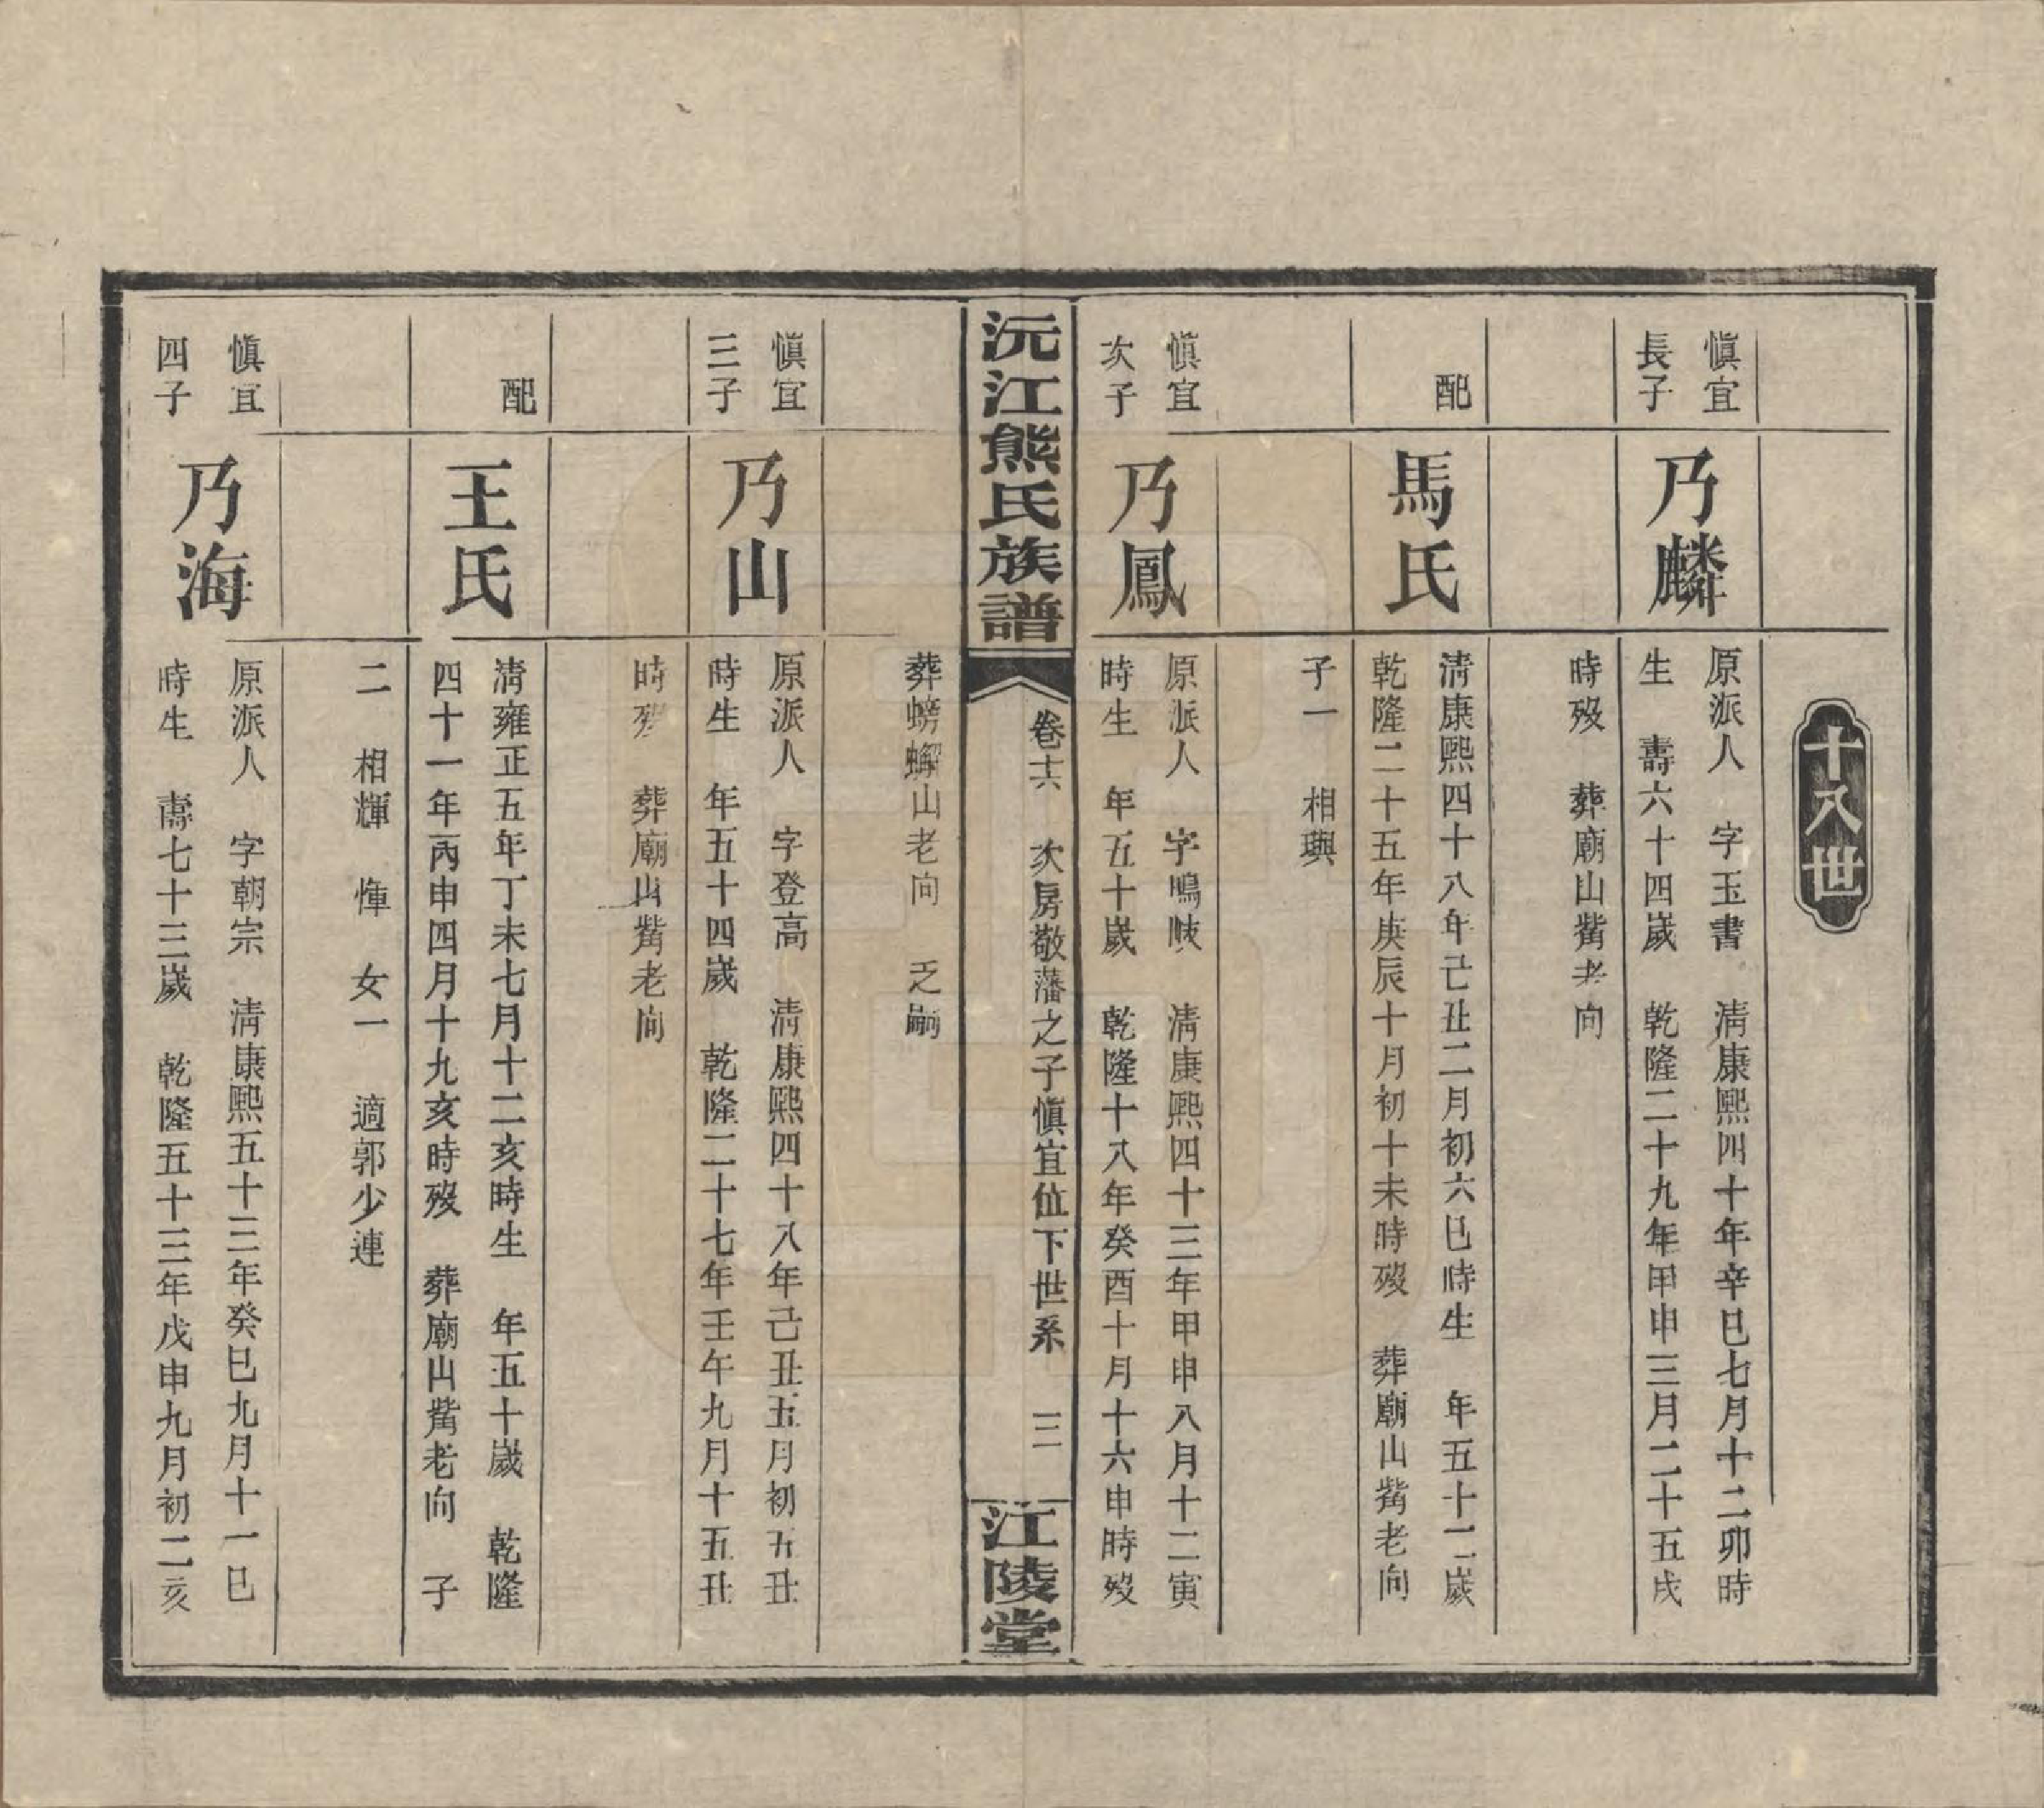 十八世
愼宜
長子
乃麟
原派人　字玉書　淸康熙四十年辛巳七月十二卯時
生　壽六十四歲　乾隆二十九年甲申三月二十五戌
時歿　葬廟山觜老向
配
馬氏
淸康熙四十八年己丑二月初六巳時生　年五十二歲
乾隆二十五年庚辰十月初十未時歿　葬廟山觜老向
子一　相璵
愼宜
次子
乃鳳
原派人　字鳴岐　淸康熙四十三年甲申八月十二寅
時生　年五十歲　乾隆十八年癸酉十月十六申時歿
沅江熊氏族譜
卷十六　次房敬藩之子愼宜位下世系　三
江陵堂
葬螃蠏山老向　乏嗣
愼宜
三子
乃山
原派人　字登高　淸康熙四十八年己丑五月初五丑
時生　年五十四歲　乾隆二十七年壬午九月十五丑
時歿　葬廟山觜老向
配
王氏
淸雍正五年丁未七月十二亥時生　年五十歲　乾隆
四十一年丙申四月十九亥時歿　葬廟山觜老向　子
二　相輝　惲　女一　適郭少連
愼宜
四子
乃海
原派人　字朝宗　淸康熙五十三年癸巳九月十一巳
時生　壽七十三歲　乾隆五十三年戊申九月初二亥